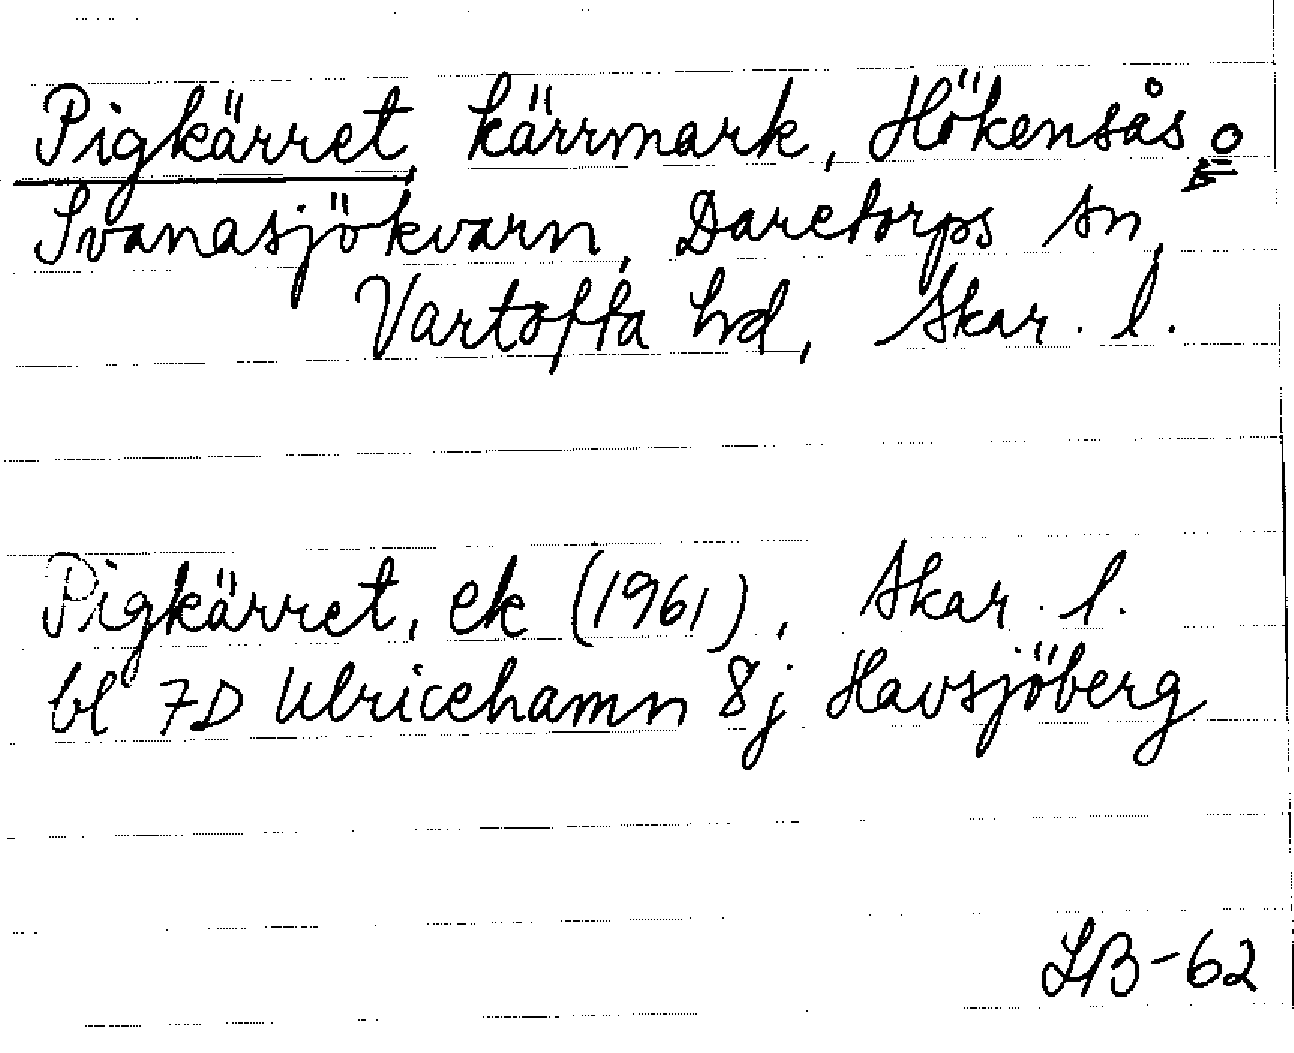 Pigkärret, kärrmark, Hökensås o
Svanasjökvarn, Daretorps sn,
Vartofta hd, Skar. l.
Pigkärret, ek (1961), Skar. l.
bl 7D Ulricehamn 8j Havsjöberg
LB-62